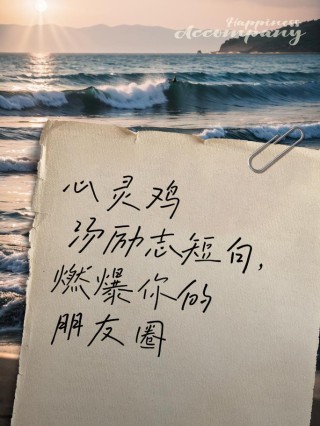 Happiness
Accompany
心灵鸡
汤励志短句，
燃爆你的
朋友圈